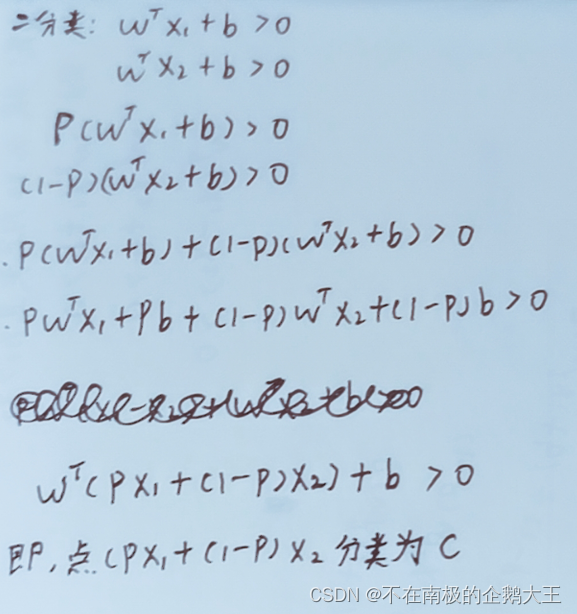 二分类: wᵀx₁+b>0
wᵀx₂+b>0
P(wᵀx₁+b)>0
(1-P)(wᵀx₂+b)>0
.P(wᵀx₁+b)+(1-P)(wᵀx₂+b)>0
.Pwᵀx₁+Pb+(1-P)wᵀx₂+(1-P)b>0
wᵀ(Px₁+(1-P)x₂)+b>0
即,点(Px₁+(1-P)x₂分类为C
CSDN @不在南极的企鹅大王